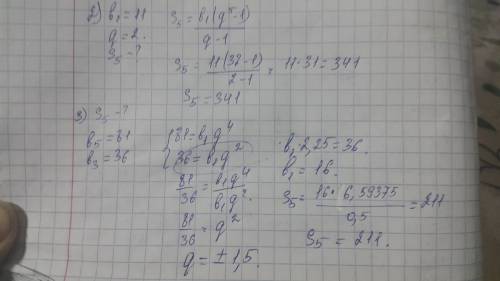 2) b₁ = 11   S₅ = b₁(q⁵-1)/(q-1)
q = 2.
S₅ - ?   S₅ = 11(32-1)/(2-1) = 11·31 = 341
S₅ = 341
3) S₅ - ?
b₅ = 81   { 81 = b₁q⁴
b₃ = 36   { 36 = b₁q²
81/36 = b₁q⁴/b₁q².
81/36 = q²
q = ±1,5.
b₁·2,25 = 36.
b₁ = 16.
S₅ = 16·6,59375/0,5 = 211
S₅ = 211.